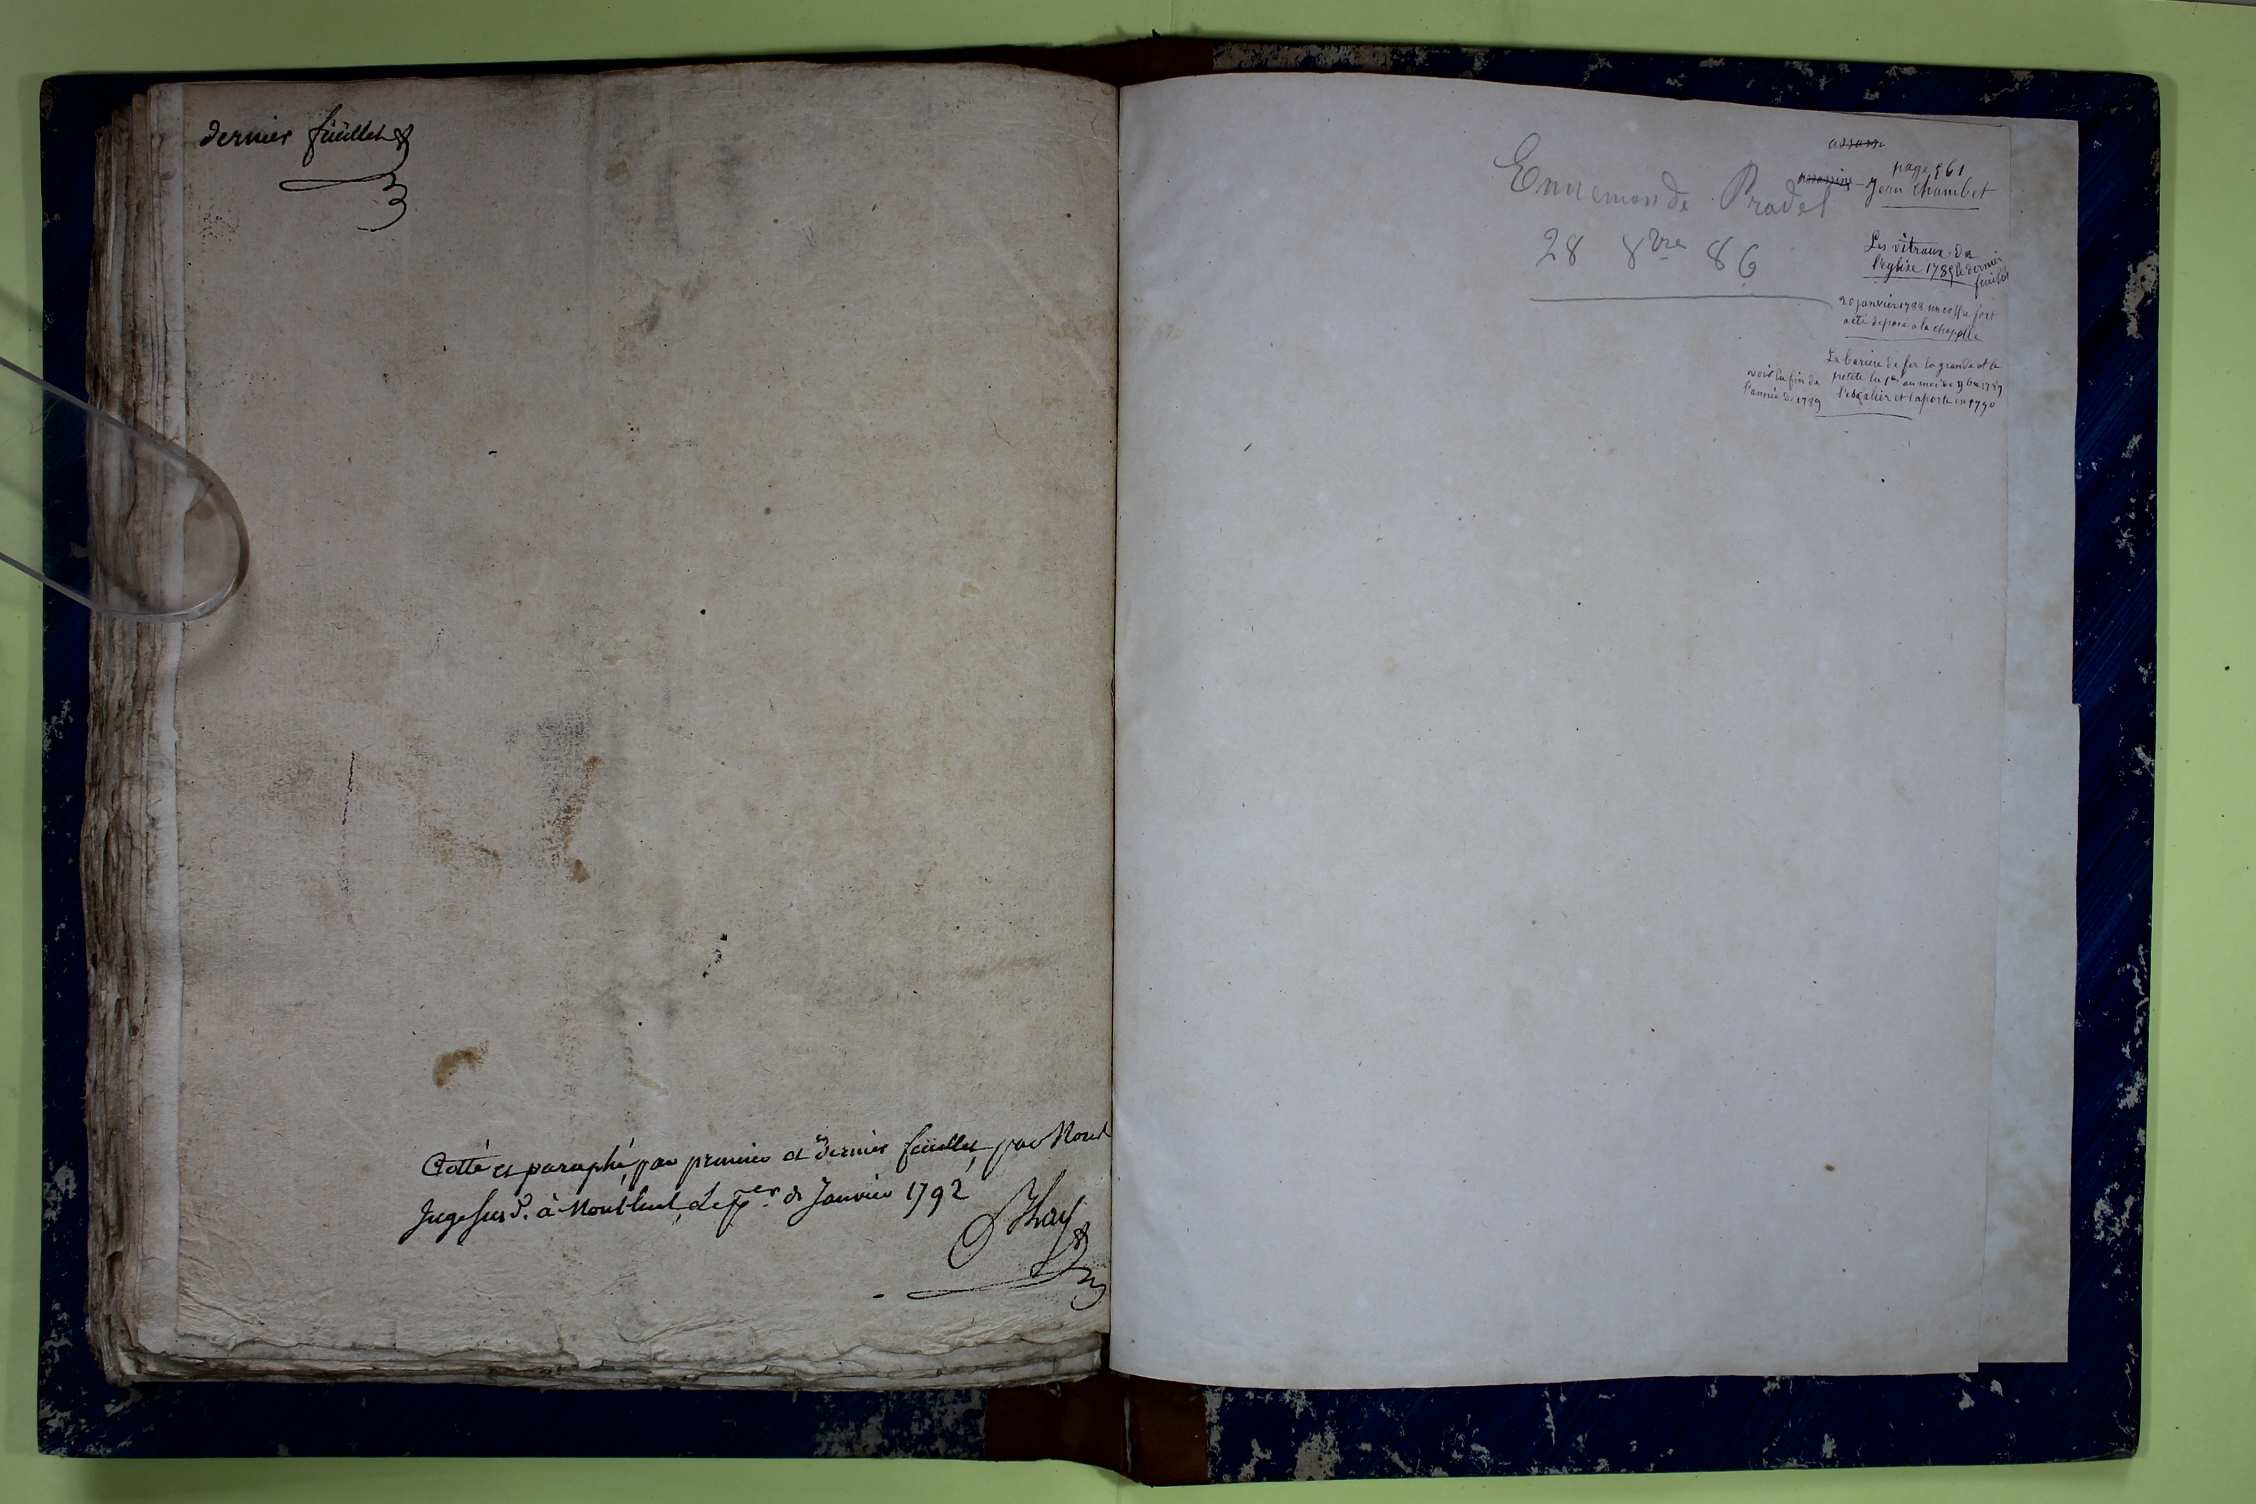 dernier feüillet
Cotté et paraphé par premier et dernier feüillet, par Nous
Juge susd. à Montluel, Le 1er de Janvier 1792
page 561
assassiné - Jean Chambet
Ennemonde Pradel
28 8bre 86
Les vitraux de
l'église 1789 le dernier
feuillet
20 janvier 1788 un coffre fort
a été déposé a la chapelle
La bariere de fer la grande et la
petite la 1re au moi de 9bre 1789
l'escalier et la porte en 1790
voir la fin de
l'année de 1789